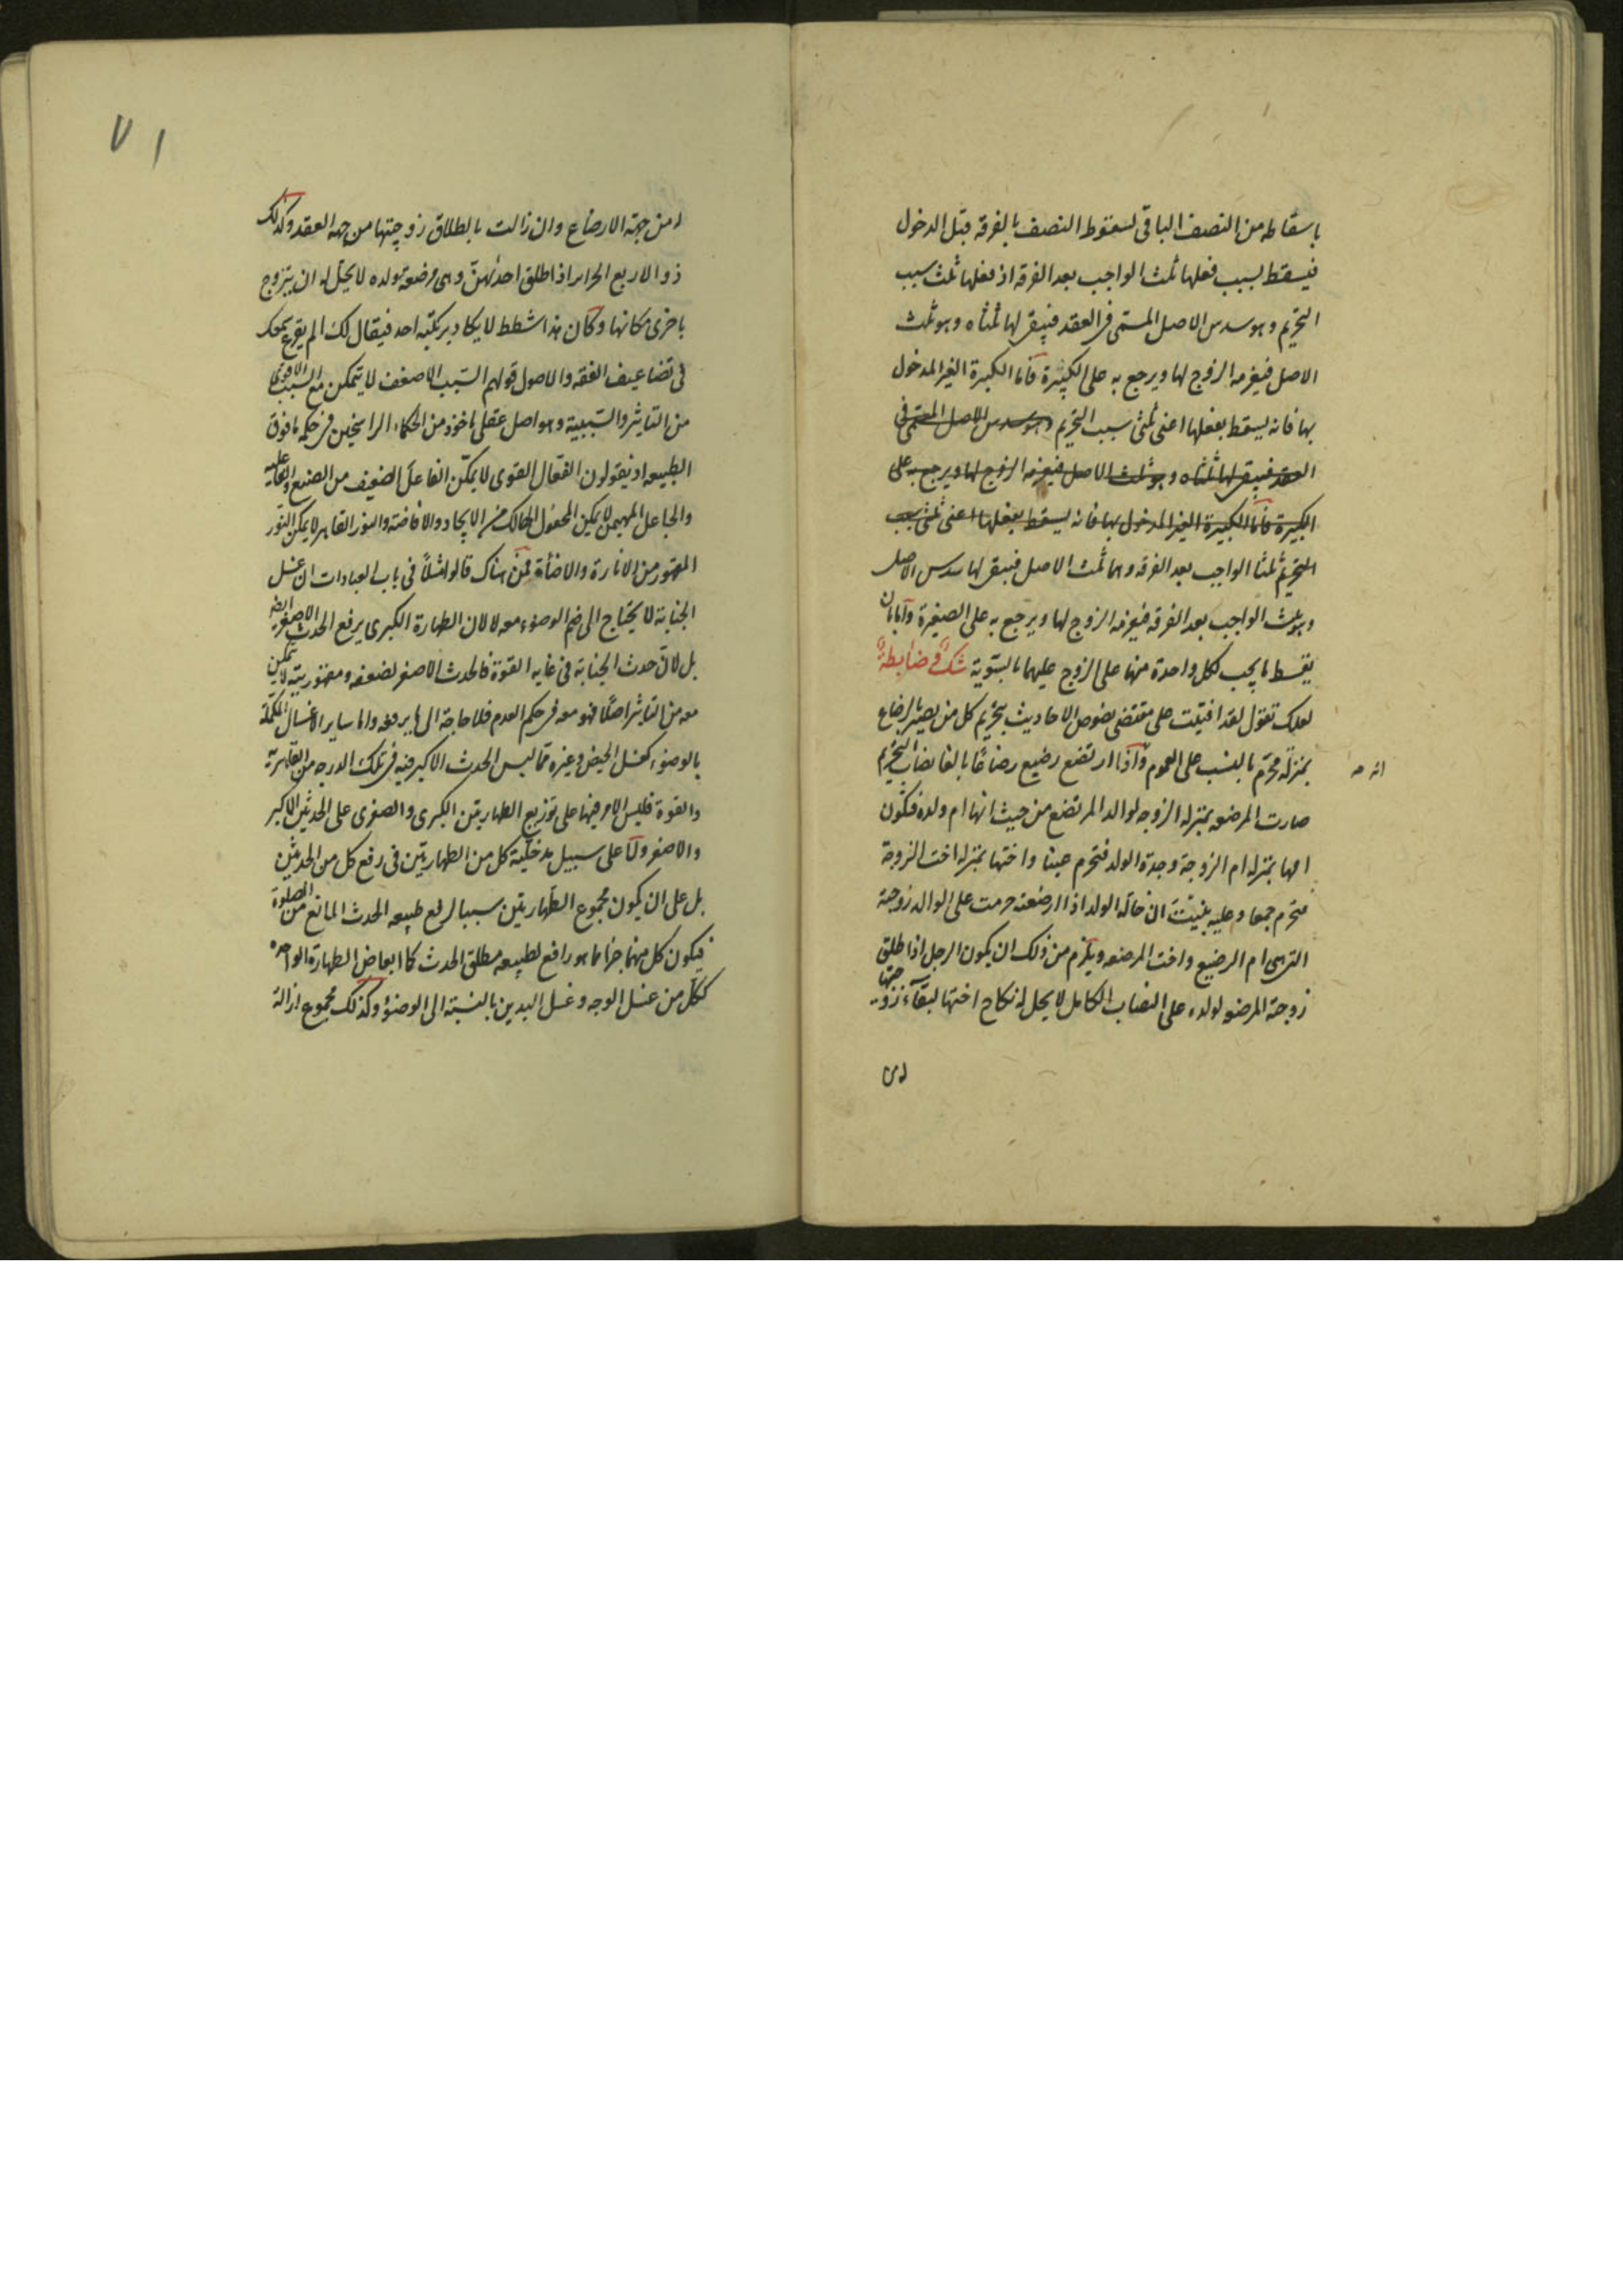 باسقاطه من النصف الباقی لسقوط النصف بالفرقه قبل الدخول
فیسقط بسبب فعلها ثلث الواجب بعد الفرقه اذ فعلها ثلث سبب
التحریم وهو سدس الاصل المسمی فی العقد فیبقی لها ثلثاه وهو ثلث
الاصل فیغرمه الزوج لها ویرجع به علی الکبیرة فاما الکبیرة الغیر المدخول
بها فانه یسقط بفعلها اعنی ثلثی سبب التحریم وهو سدس الاصل المسمی فی
العقد فیبقی لها ثلثاه وهو ثلث الاصل فیغرمه الزوج لها ویرجع به علی
الکبیرة فاما الکبیرة الغیر المدخول بها فانه یسقط بفعلها اعنی ثلثی سبب
التحریم ثلثا الواجب بعد الفرقه وهما ثلث الاصل فیبقی لها سدس الاصل
وهو ثلث الواجب بعد الفرقه فیغرمه الزوج لها ویرجع به علی الصغیرة واما بان
یقسط ما یجب لکل واحدة منهما علی الزوج علیهما بالسویة شک فی ضابطة
لعلک تقول لقد افتیت علی مقتضی نصوص الاحادیث بتحریم کل من یصیر بالرضاع
بمنزلة محرم بالنسب علی العموم واذا ارتضع رضیع رضاعا بالغا نصاب التحریم
صارت المرضعه بمنزله الزوجه لوالد المرتضع من حیث انها ام ولده فتکون
امها بمنزله ام الزوجة وجدة الولد فتحرم عینا واختها بمنزله اخت الزوجة
فتحرم جمعا وعلیه بنیت ان خالة الولد اذا ارضعته حرمت علی الوالد زوجته
التی هی ام الرضیع واخت المرضعه ویلزم من ذلک ان یکون الرجل اذا طلق
زوجته المرضعه لولده علی النصاب الکامل لا یحل له نکاح اختها لبقاء زوجیتها
له من
انه صـ
٧١
له من جهة الارضاع وان زالت بالطلاق زوجیتها من جهه العقد وکذلک
ذو الاربع الحرایر اذا طلق احدیهن وهی مرضعة لولده لا یحل له ان یتزوج
باخری مکانها وکان هذا شطط لا یکاد یرتکبه احد فیقال لک الم یقرع سمعک
فی تضاعیف الفقه والاصول قولهم السبب الاضعف لا یتمکن مع السبب الاقوی
من التاثیر والسببیة وهو اصل عقلی ماخوذ من الحکماء الراسخین فی حکمه ما فوق
الطبیعه اذ یقولون الفعال القوی لا یمکن الفاعل الضعیف من الصنیع والفاعلیه
والجاعل المهیمن لا یمکن المجعول الهالک من الایجاد والافاضه والنور القاهر لا یمکن النور
المقهور من الانارة والاضاءة فمن هناک قالوا مثلا فی باب العبادات ان غسل
الجنابة لا یحتاج الی ضم الوضوء معه لا لان الطهارة الکبری یرفع الحدث الاصغر ایضه
بل لان حدث الجنابة فی غایه القوة فالحدث الاصغر لضعفه ومقهوریته لا یتمکن
معه من التاثیر اصلا فهو معه فی حکم العدم فلا حاجة الی ما یرفعه واما سایر الاغسال المکملة
بالوضوء کغسل الحیض وغیره مما لیس الحدث الاکبر فیه فی تلک الدرجه من القاهریة
والقوة فلیس الامر فیها علی توزیع الطهارتین الکبری والصغری علی الحدثین الاکبر
والاصغر ولا علی سبیل مدخلیة کل من الطهارتین فی رفع کل من الحدثین
بل علی ان یکون مجموع الطهارتین سببا لرفع طبیعه الحدث المانع من الصلوة
فیکون کل منهما جزءا مما هو رافع لطبیعه مطلق الحدث کما ابعاض الطهارة الواحده
ککل من غسل الوجه وغسل الیدین بالنسبة الی الوضوء وکذلک مجموع ازالة